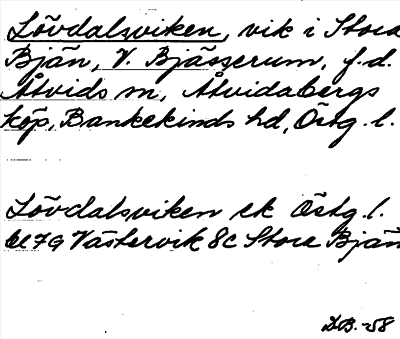 Lövdalsviken, vik i Stora
Bjän, V. Bjässerum, f.d.
Åtvids sn, Åtvidabergs
köp, Bankekinds hd, Östg. l.
Lövdalsviken ek Östg. l.
bl 79 Västervik 8c Stora Bjän
D.B. -58